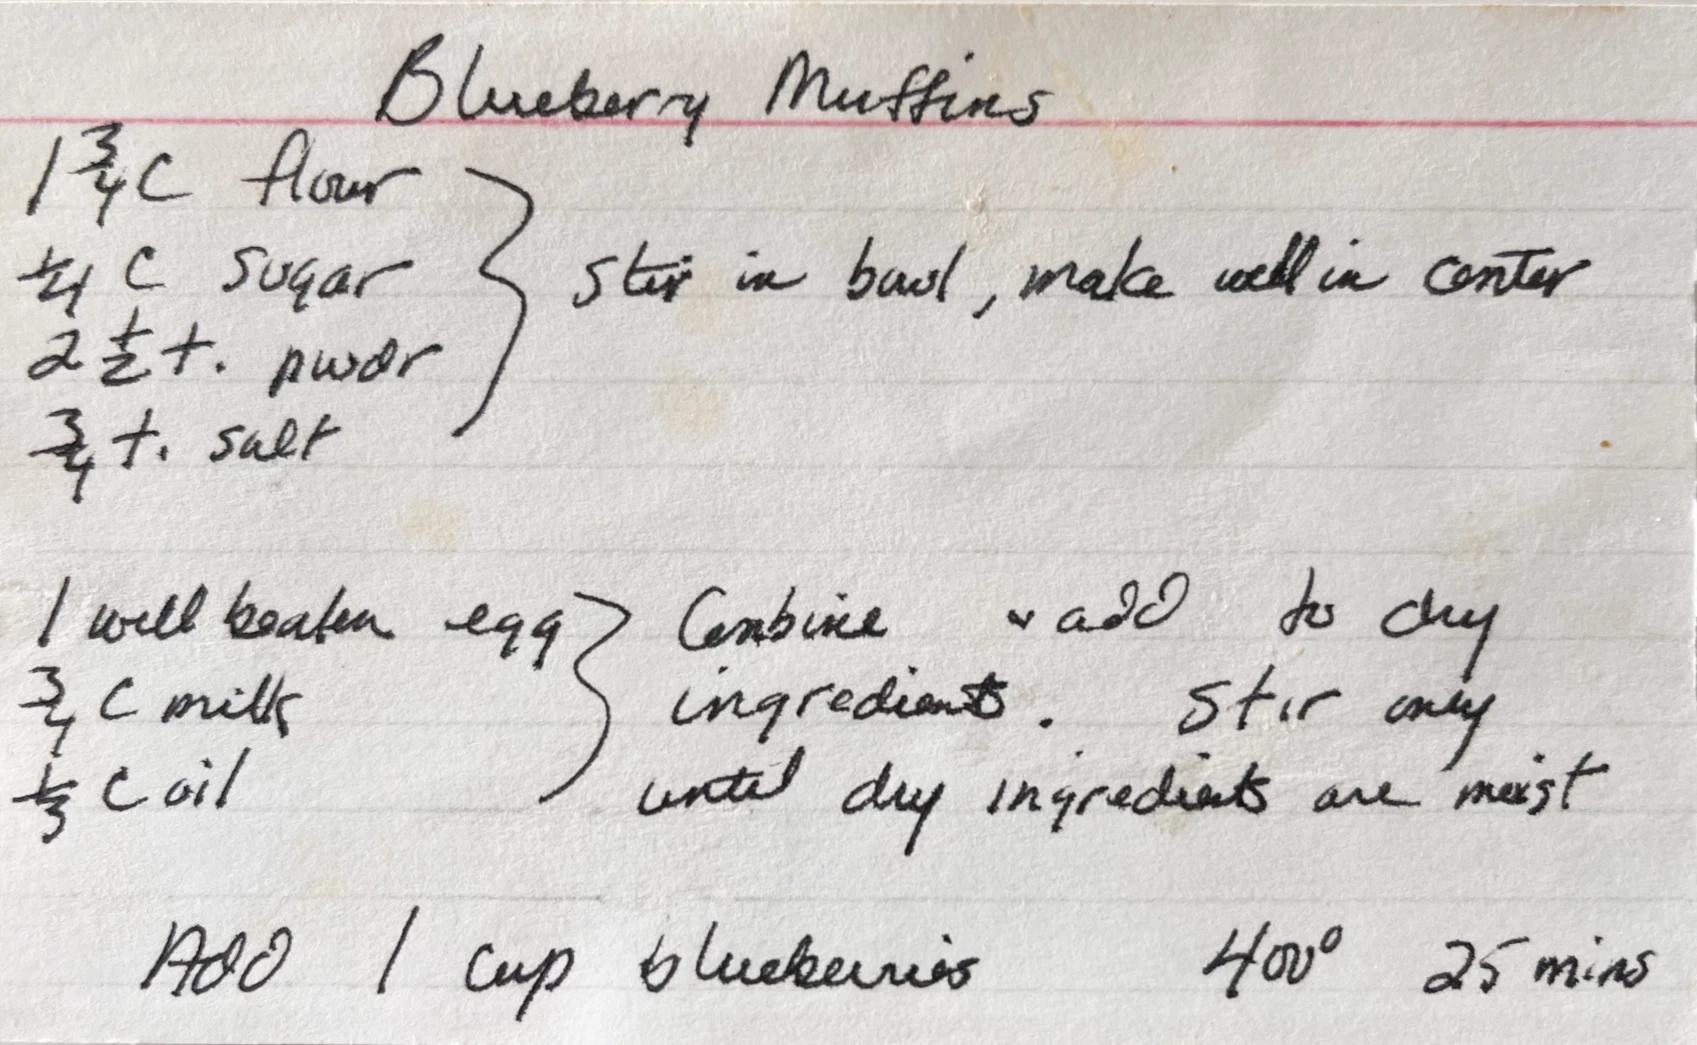 Blueberry Muffins
1 3/4 C flour
1/4 C sugar
2 1/2 t. pwdr
3/4 t. salt
Stir in bowl, make well in center
1 well beaten egg
3/4 C milk
1/3 C oil
Combine & add to dry
ingredients. Stir only
until dry ingredients are moist
Add 1 cup blueberries 400° 25 mins